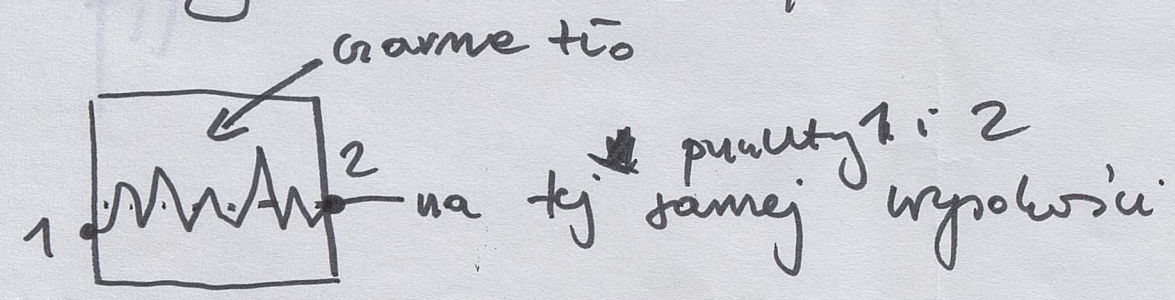 czarne tło
punkty 1 i 2
2
na tej samej wysokości
1